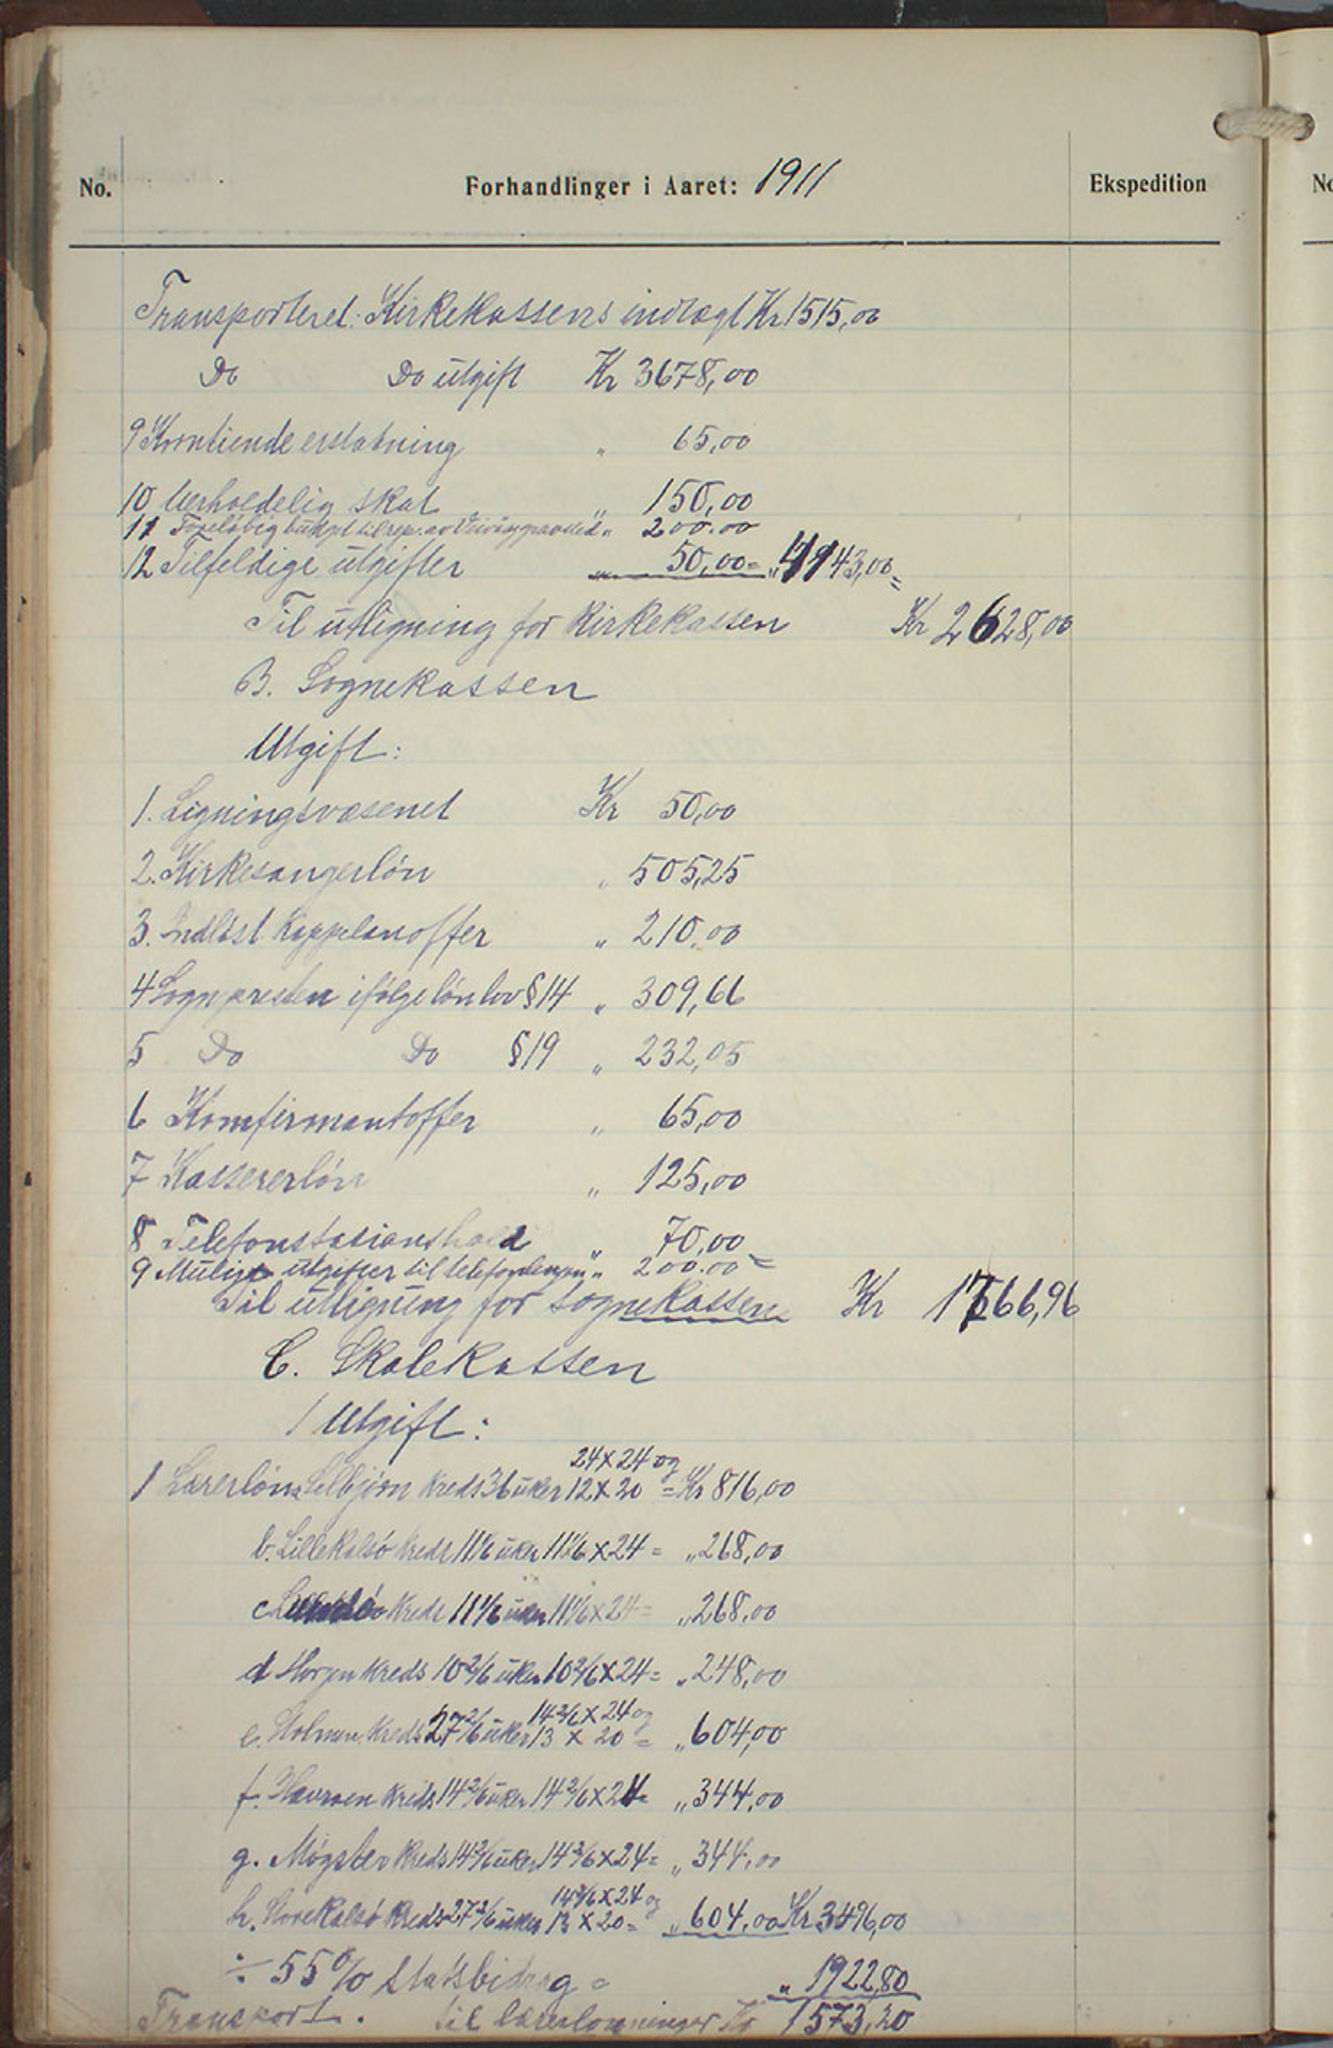 No.
Forhandlinger i Aaret: 1911
Ekspedition
No
Transporteret: Kirkekassens indtægt Kr 1515,00
Do Do utgift Kr 3678,00
9 Korntiende erstatning " 65,00
10 Uerholdelig skat " 150,00
11 Foreløbig budgt til rep. av " 200.00
12 Tilfeldige utgifter " 50,00 = " 4143,00 =
Til utligning for Kirkekassen Kr 2628,00
B. Sognekassen
Utgift:
1. Ligningsvæsenet Kr 50,00
2. Kirkesangerløn " 505,25
3. Indløst Kappelanoffer " 210,00
4 Sognpresten ifølge lønlov § 14 " 309,66
5 Do Do § 19 " 232,05
6 Komfirmantoffer " 65,00
7 Kassererløn " 125,00
8 Telefonstasionshold " 70,00 =
9 Mulige utgifter til telefonlinjen " 200.00 =
Til utligning for sognekassen Kr 1766,96
C. Skolekassen
1 Utgift:
24 x 24 og
1 Lærerløn a Selbjørn Kreds 36 uker 12 x 20 = Kr 816,00
b. Lillekalsø Kreds 11 1/6 uker 11 1/6 x 24 = " 268,00
c Kreds 11 1/6 uker 11 1/6 x 24 = " 268,00
d Horgen Kreds 10 2/6 uker 10 2/6 x 24 = " 248,00
14 2/6 x 24 og
e. Stolmen Kreds 27 2/6 uker 13 x 20 = " 604,00
f. Kreds 14 2/6 uker 14 2/6 x 24 = " 344,00
g. Møgster Kreds 14 2/6 uker 14 2/6 x 24 = " 344,00
14 2/6 x 24 og
h. Storekalsø Kreds 27 2/6 uker 13 x 20 = " 604,00 Kr 3496,00
÷ 55 % Statsbidrag = " 1922,80
Transport. til lærerlønninger Kr 1573,20